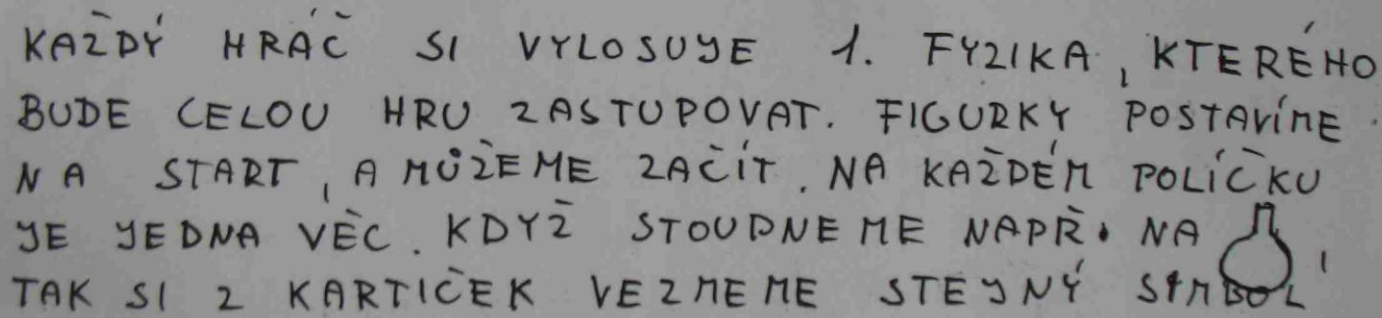 KAŽDÝ HRÁČ SI VYLOSUJE 1. FYZIKA, KTERÉHO
BUDE CELOU HRU ZASTUPOVAT. FIGURKY POSTAVÍME
NA START, A MŮŽEME ZAČÍT. NA KAŽDÉM POLÍČKU
JE JEDNA VĚC. KDYŽ STOUPNEME NAPŘ. NA ,
TAK SI Z KARTIČEK VEZMEME STEJNÝ SYMBOL